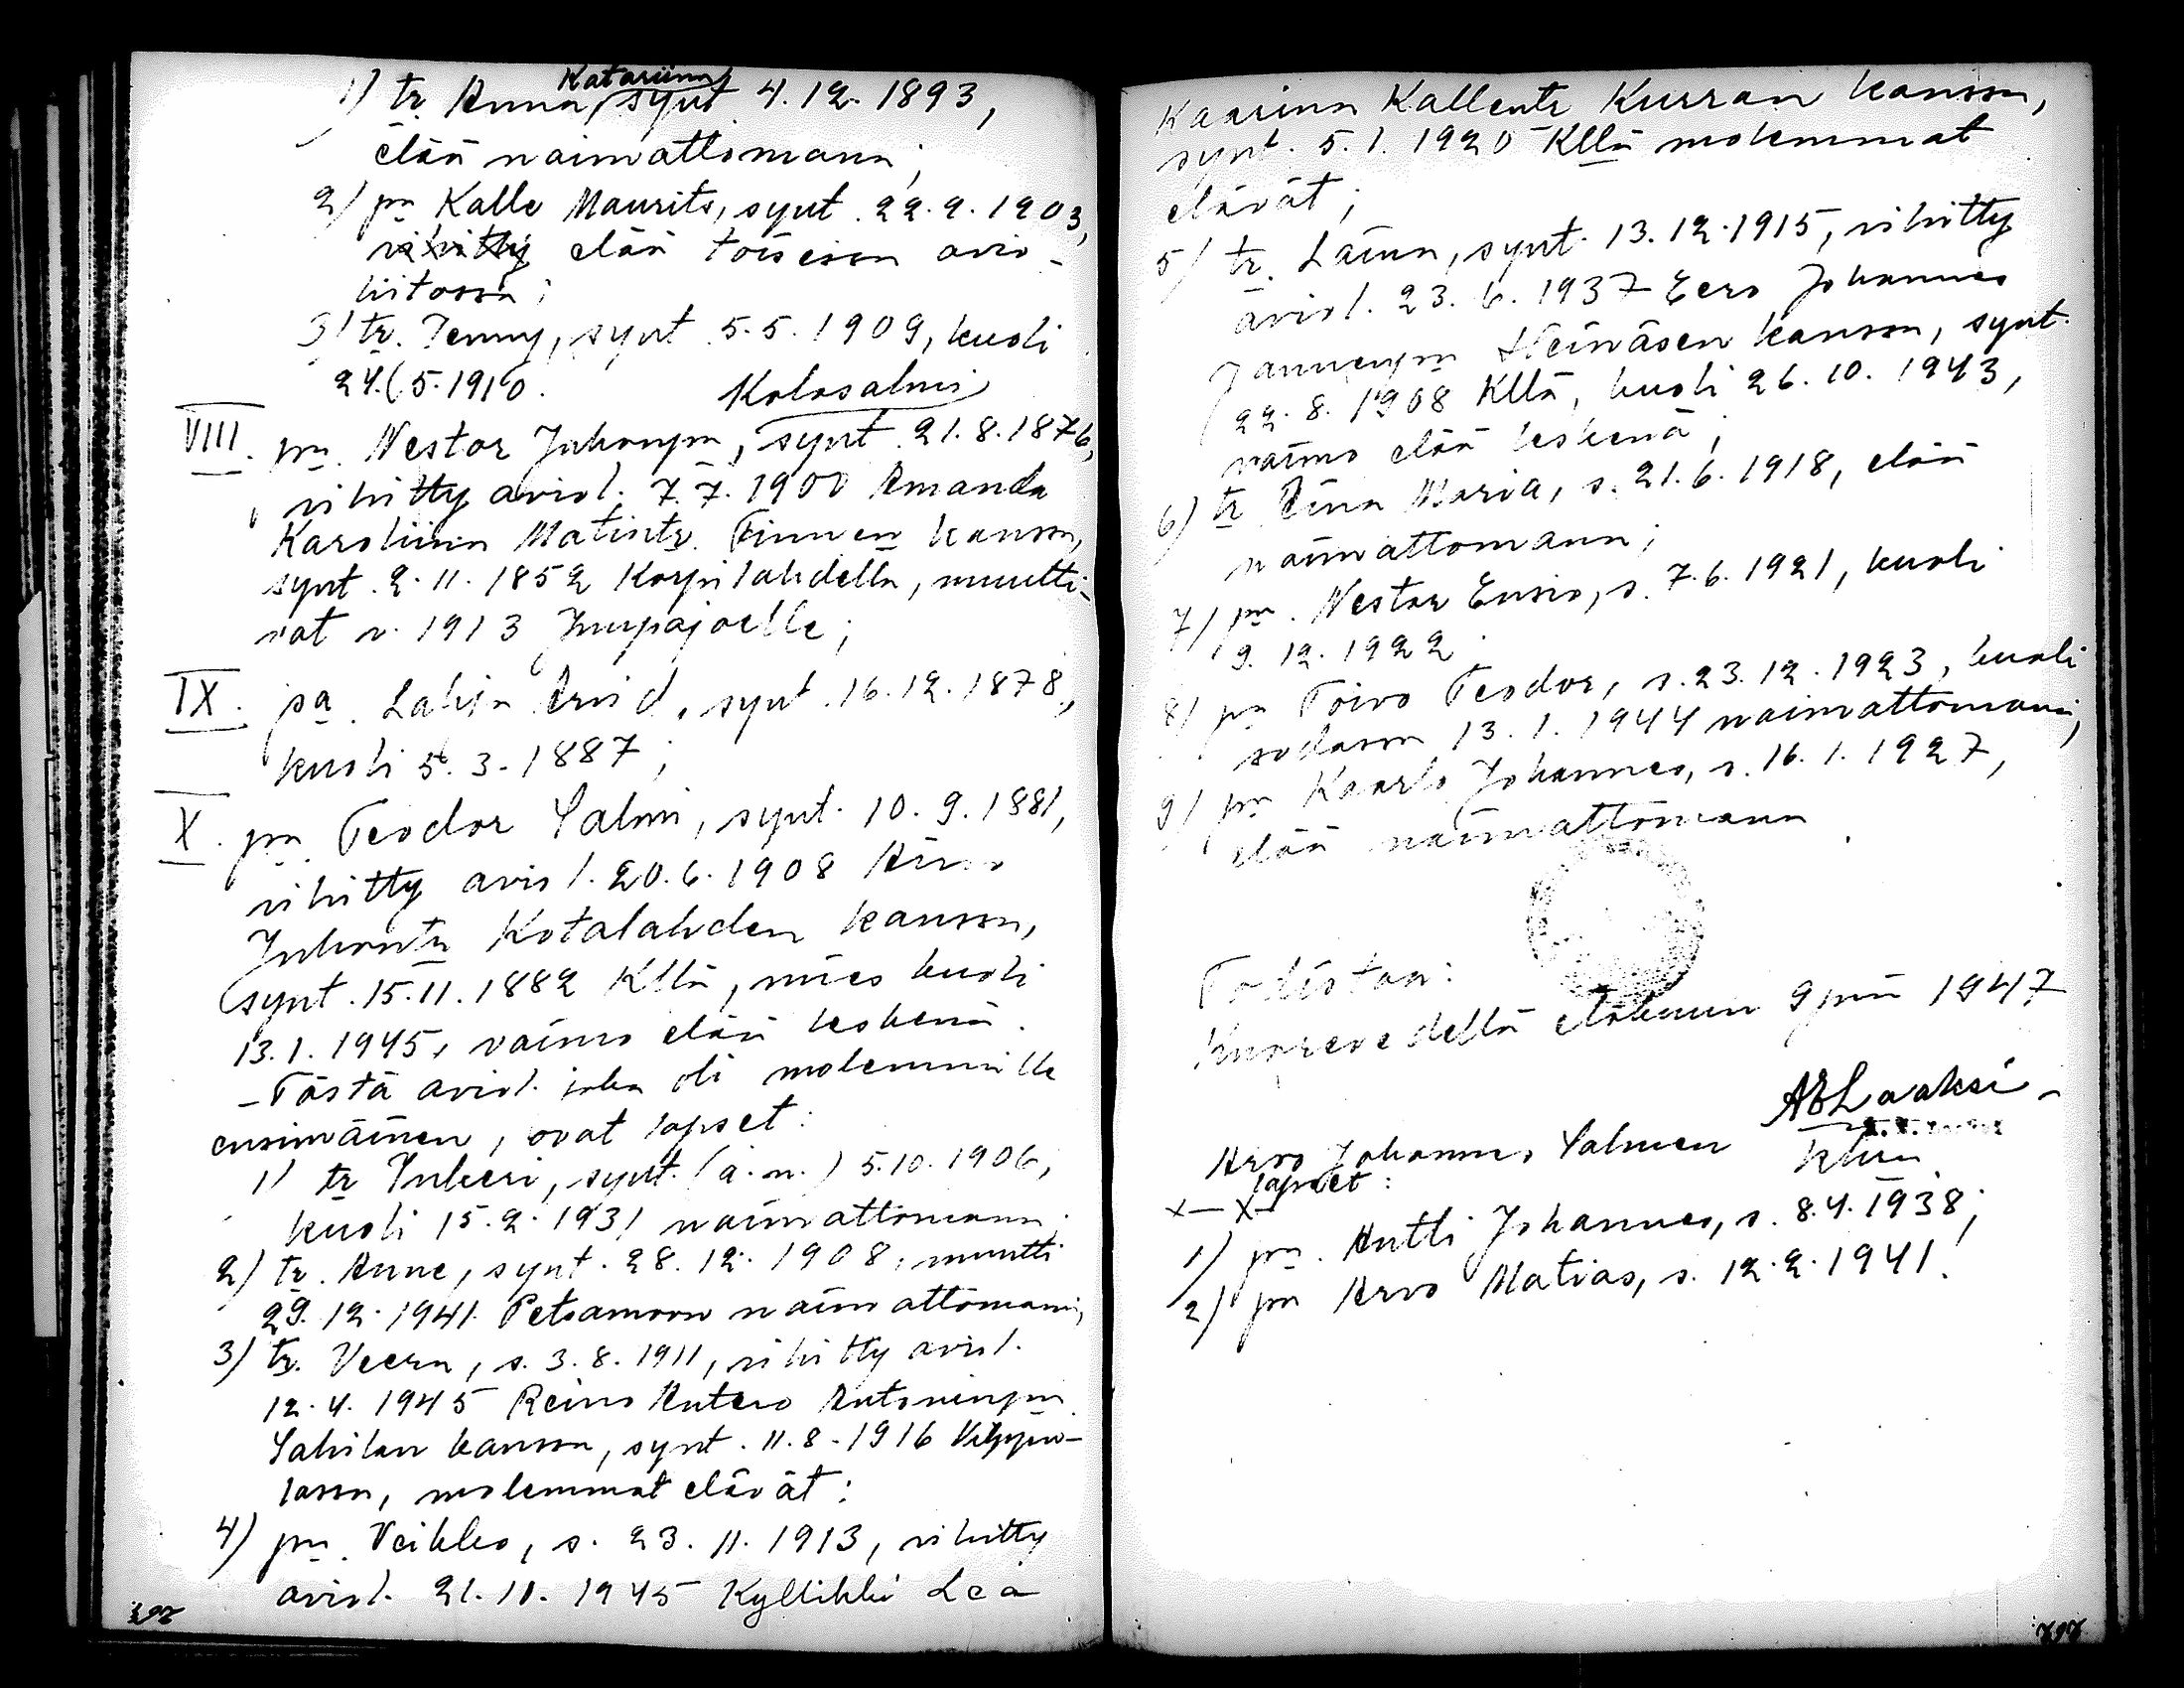 1) tr. Anna Katariina, synt 4.12.1893,
elää naimattomana;
2) pn Kalle Maurits, synt. 22.9.1903,
vihitty elää toisessa avio-
liitossa;
3) tr. Jenny, synt 5.5.1909, kuoli
24.5.1910.
Kolosalmi
VIII. pn. Nestor Juhonpn, synt 21.8.1876,
vihitty aviol. 7.7.1900 Amanda
Karoliina Matintr. Finnen kanssa,
synt. 2.11.1852 Korpilahdella, muutti-
vat v. 1913 Juupajoelle;
IX. pa. Lahja Arvid, synt. 16.12.1878,
kuoli 5.3.1887;
X. pn. Teodor Salmi, synt. 10.9.1881,
vihitty aviol. 20.6.1908 Aino
Juhontr Kotalahden kanssa,
synt. 15.11.1882 Kllä, mies kuoli
13.1.1945, vaimo elää leskenä.
- Tästä aviol. joka oli molemmille
ensimäinen, ovat lapset:
1) tr Inkeri, synt. (a.n.) 5.10.1906,
kuoli 15.2.1931 naimattomana;
2) tr. Anne, synt. 28.12.1908, muutti
29.12.1941 Petsamoon naimattomana,
3) tr. Veera, s. 3.8.1911, vihitty aviol.
12.4.1945 Reino Antero Antoninpn
Sahilan kanssa, synt. 11.8.1916 Vilppu-
lassa, molemmat elävät;
4) pn. Veikko, s. 23.11.1913, vihitty
aviol. 21.11.1945 Kyllikki Lea
Kaarina Kallentr Kurran kanssa,
synt. 5.1.1920 Kllä molemmat
elävät;
5) tr. Laina, synt. 13.12.1915, vihitty
aviol. 23.6.1937 Eero Johannes
Jannenpn Heinäsen kanssa, synt.
22.8.1908 Kllä, kuoli 26.10.1943,
vaimo elää leskenä;
6) tr Aina Maria, s. 21.6.1918, elää
naimattomana;
7) pn. Nestor Ensio, s. 7.6.1921, kuoli
9.12.1922.
8) pn Toivo Teodor, s. 23.12.1923, kuoli
sodassa 13.1.1944 naimattomana,
9) pn Kaarlo Johannes, s. 16.1.1927,
elää naimattomana.
Todistaa:
Kuorevedellä elokuun 9 pnä 1947
AELaaksi
Arvo Johannes Salmen
lapset:
x—x
1) pn. Antti Johannes, s. 8.4.1938;
2) pn Arvo Matias, s. 12.2.1941.
797